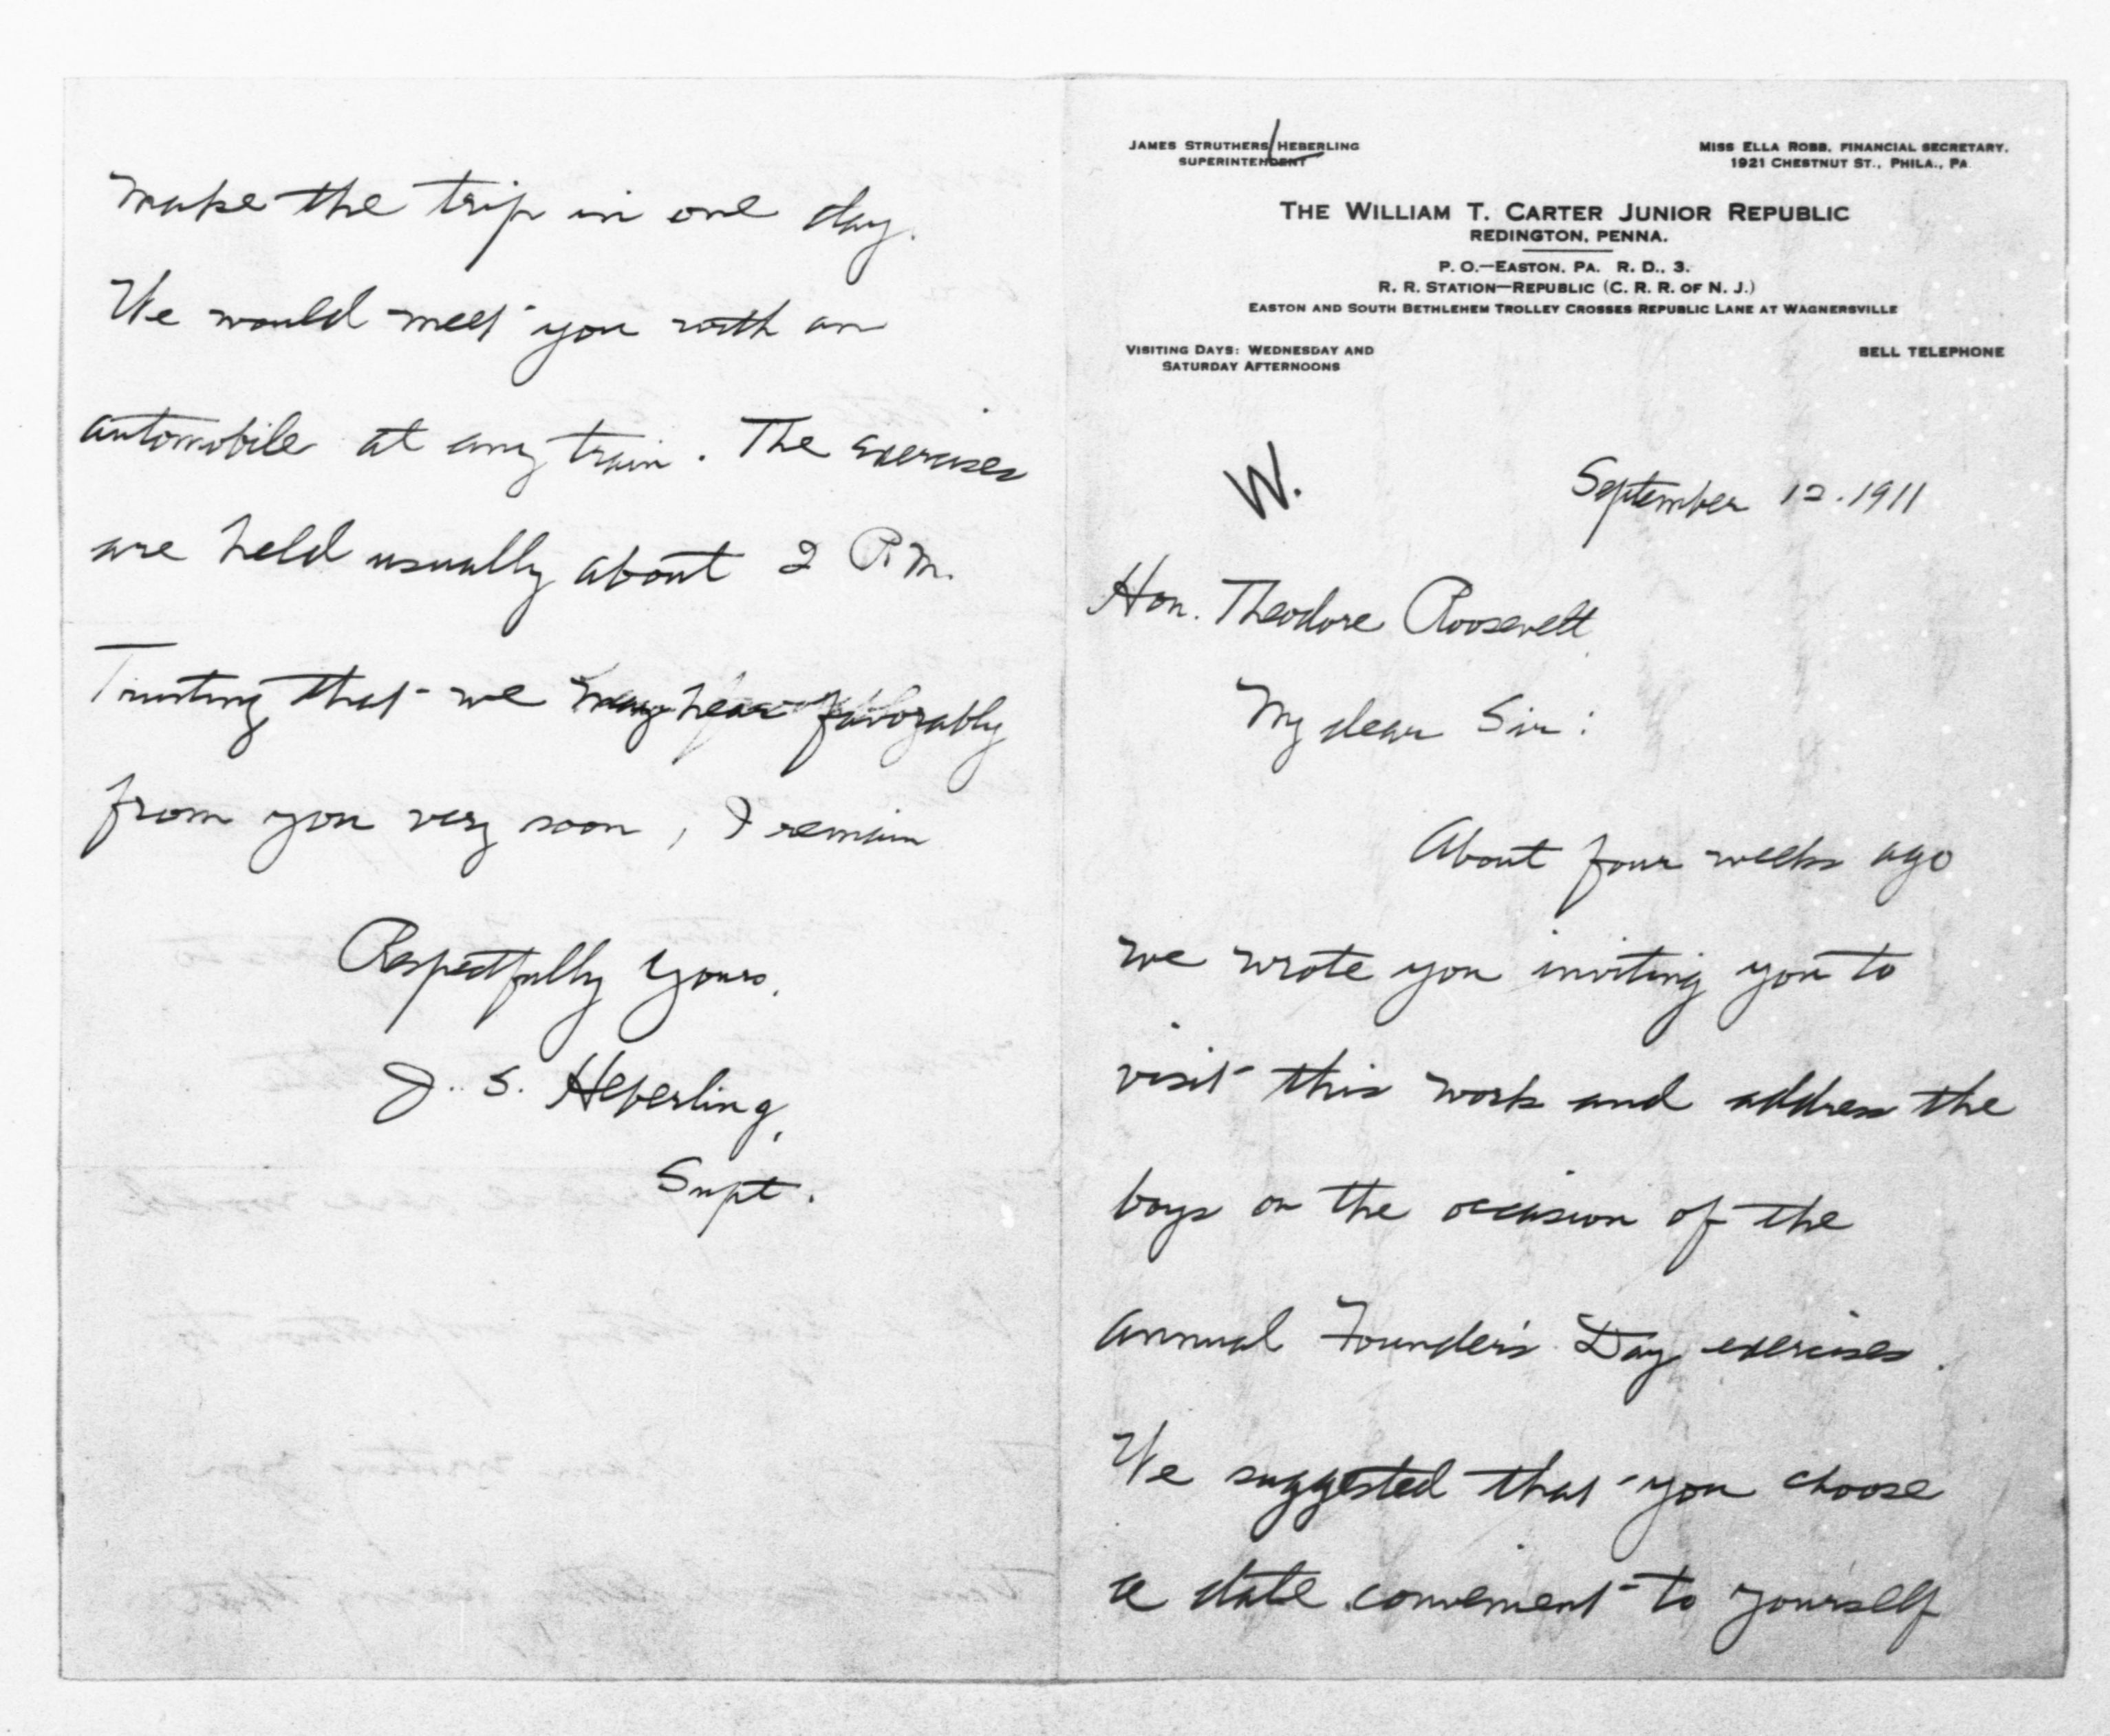 JAMES STRUTHERS HEBERLING
SUPERINTENDENT
MISS ELLA ROBB, FINANCIAL SECRETARY,
1921 CHESTNUT ST., PHILA., PA
THE WILLIAM T. CARTER JUNIOR REPUBLIC
REDINGTON, PENNA.
P. O.—EASTON, PA. R. D., 3.
R. R. STATION—REPUBLIC (C. R. R. OF N. J.)
EASTON AND SOUTH BETHLEHEM TROLLEY CROSSES REPUBLIC LANE AT WAGNERSVILLE
VISITING DAYS: WEDNESDAY AND
SATURDAY AFTERNOONS
BELL TELEPHONE
W.
September 12. 1911
Hon. Theodore Roosevelt
My dear Sir:
About four weeks ago
we wrote you inviting you to
visit this work and address the
boys on the occasion of the
annual Founder's Day exercises.
We suggested that you choose
a date convenient to yourself
make the trip in one day.
We would meet you with an
automobile at any train. The exercises
are held usually about 2 P.M.
Trusting that we may hear favorably
from you very soon, I remain
Respectfully Yours,
J. S. Heberling,
Supt.